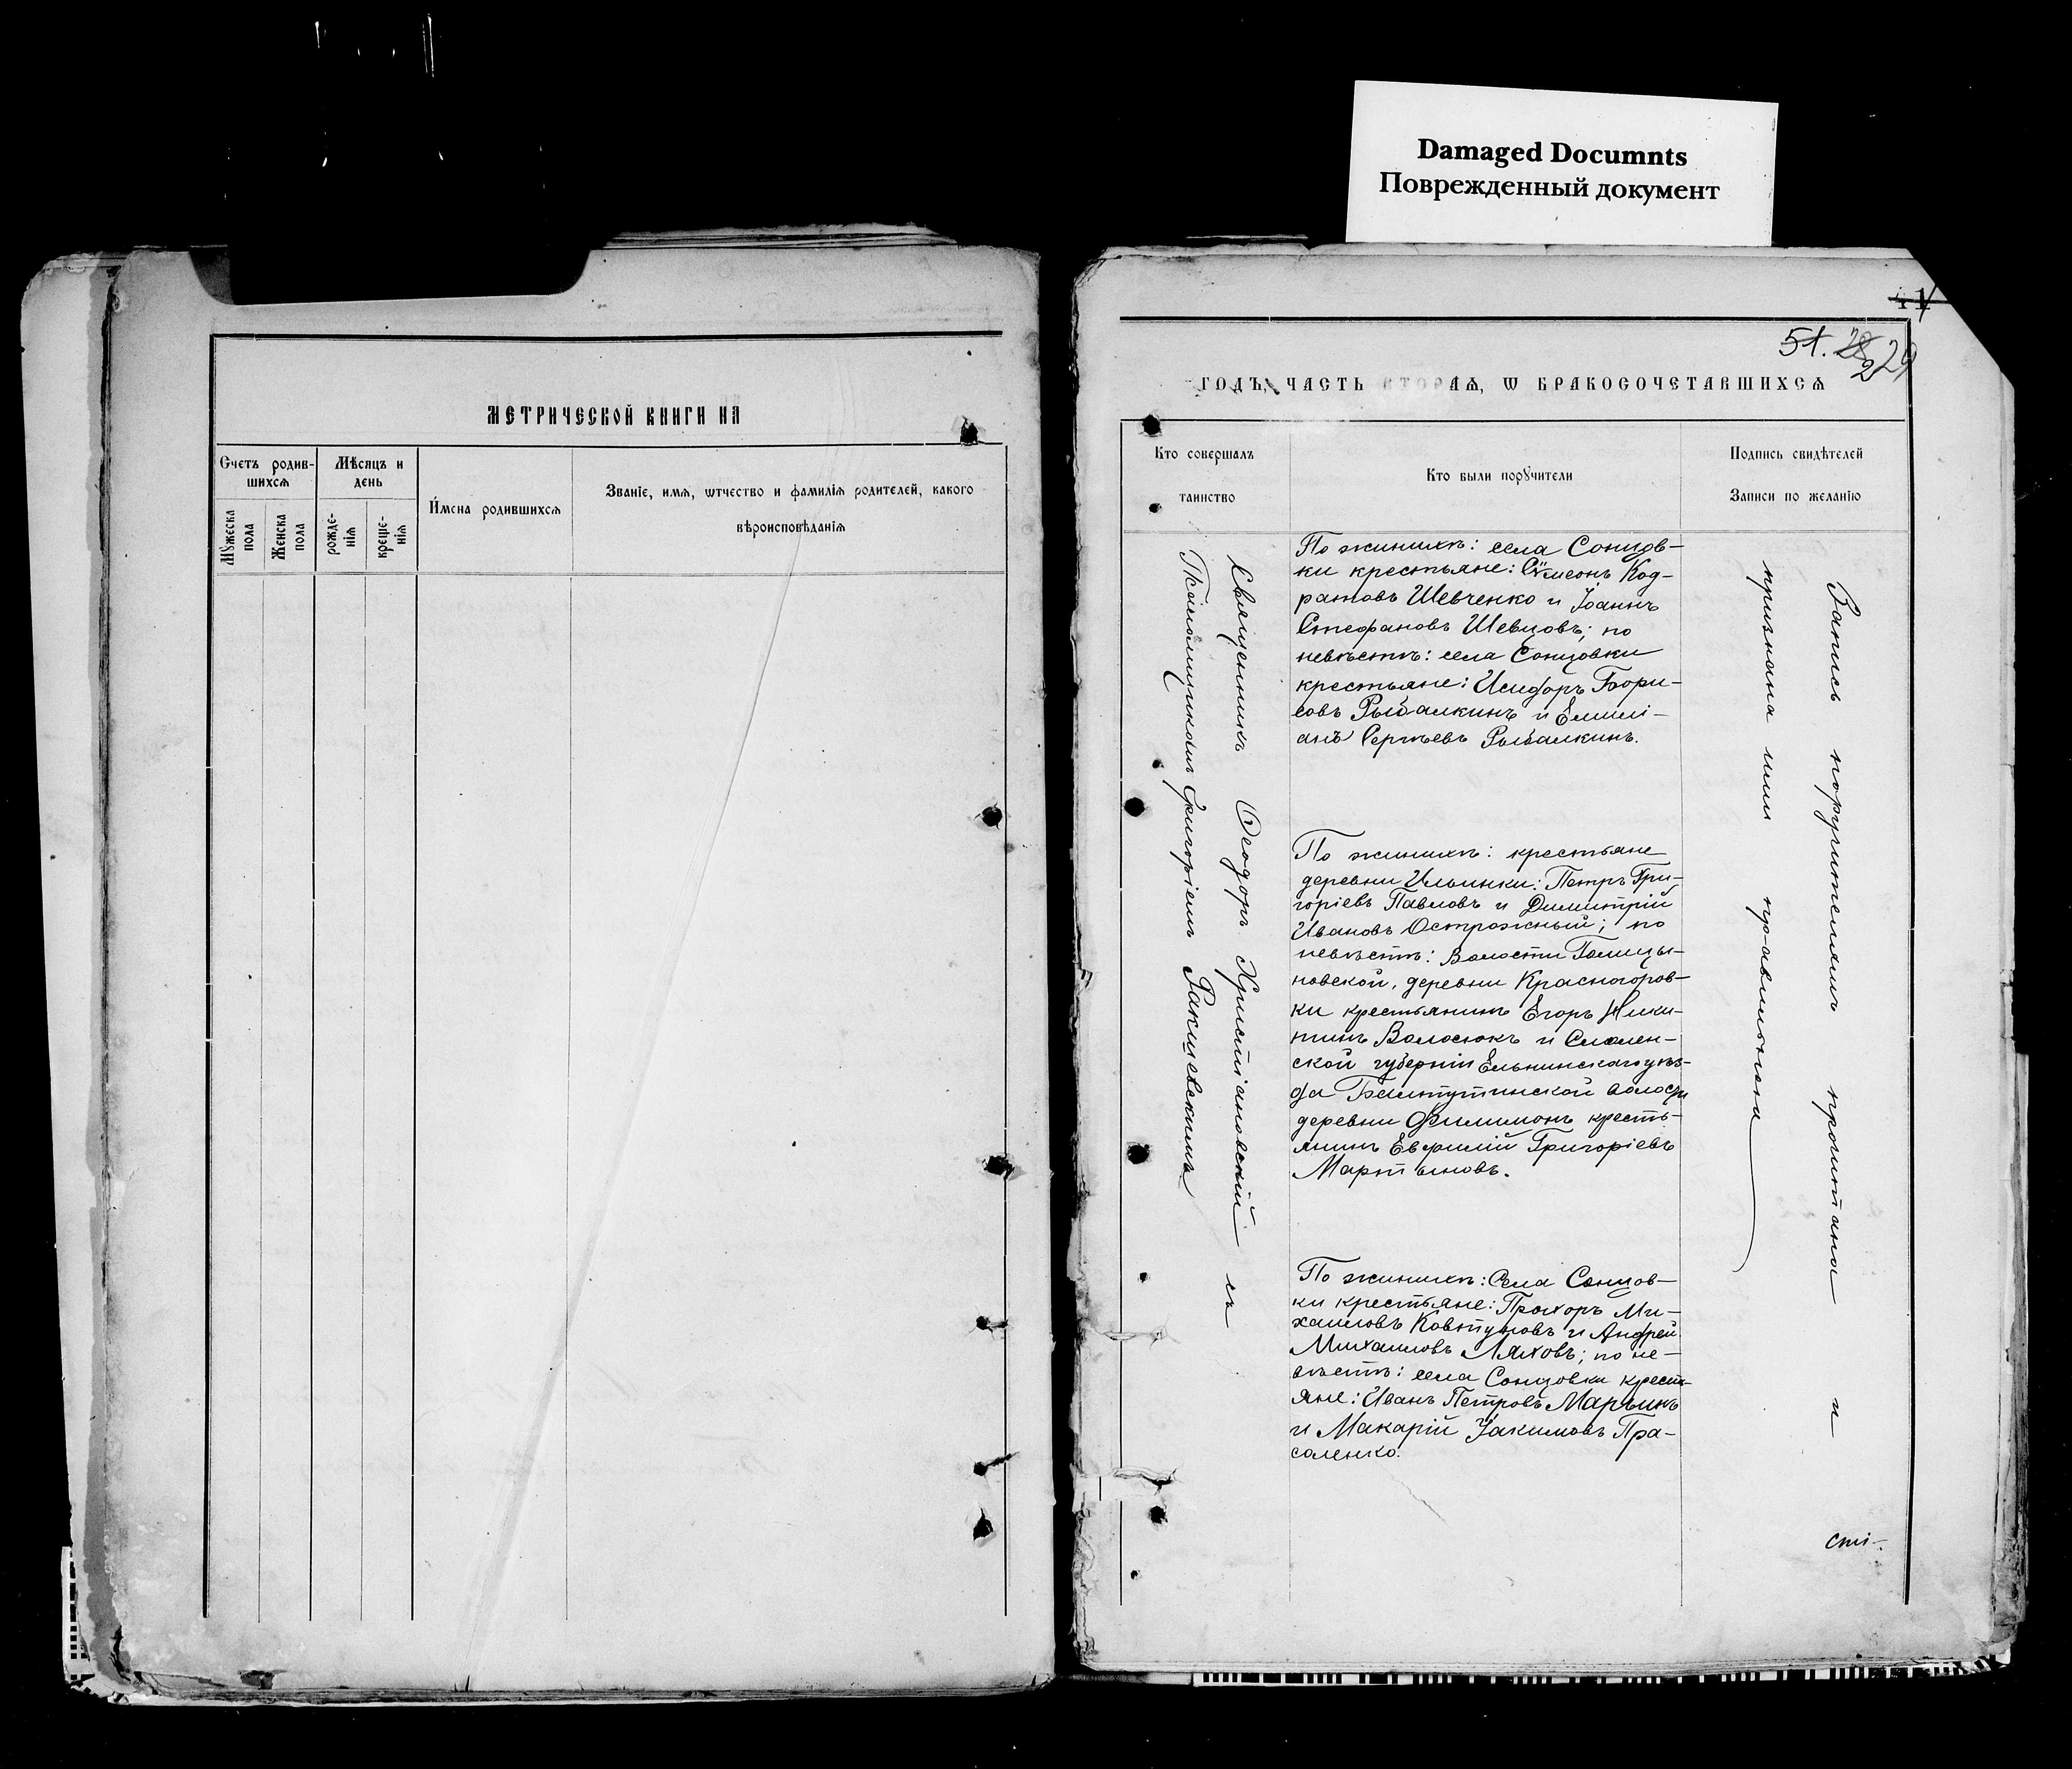 Damaged Documnts
Поврежденный документ
МЕТРИЧЕСКОЙ КНИГИ НА
Счетъ родив-
шихсѧ
Мѣсяцъ и
день
Имена родившихсѧ
Званіе, имѧ, ѡтчество и фамиліѧ родителей, какого
вѣроисповѣданіѧ
Мꙋжеска
пола
Женска
пола
рожде-
ніѧ
креще-
ніѧ
41
51. 28 29
ГОДЪ, ЧАСТЬ ВТОРАѦ, Ѡ БРАКОСОЧЕТАВШИХСѦ
Кто совершалъ
таинство
Кто были порꙋчители
Подпись свидѣтелей
Записи по желанію
Священникъ Ѳеодоръ Христіановскій съ
Псаломщикомъ Григоріемъ Ракшевскимъ
По женихѣ: села Сонцов-
ки крестьяне: Сѵмеонъ Код-
ратовъ Шевченко и Іоаннъ
Стефановъ Шевцовъ; по
невѣстѣ: села Сонцовки
крестьяне: Исидоръ Бори-
совъ Рыбалкинъ и Емилі-
анъ Сергѣевъ Рыбалкинъ.
По женихѣ: крестьяне
деревни Ильинки: Петръ Гри-
горіевъ Павловъ и Димитрій
Ивановъ Острожный; по
невѣстѣ: Волости Голицы-
новской, деревни Красногоров-
ки крестьянинъ Егоръ Ники-
тинъ Волосюкъ и Смолен-
ской губерніи Ельнинскаго уѣз-
да Балтутинской волости
деревни Филимонъ кресть-
янинъ Евфимій Григоріевъ
Мартыновъ.
По женихѣ: Села Сонцов-
ки крестьяне: Прохоръ Ми-
хаиловъ Ковтуновъ и Андрей
Михаиловъ Ляховъ; по не-
вѣстѣ: села Сонцовки кресть-
яне: Иванъ Петровъ Марьинъ
и Макарій Іакимовъ Пра-
соленко.
Запись поручителямъ прочитана и
признана ими правильною